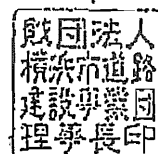 財団法人
横浜市道路
建設事業団
理事長印